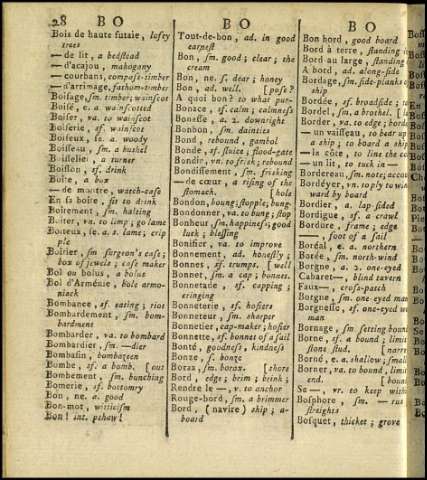 28 B O
Bois de haute futaie, lofty
trees
— de lit, a bedstead
— d'acajou, mahogany
— courbans, compass-timber
— d'arrimage, fathom-timber
Boisage, sm. timber; wainscot
Boisé, e. a wainscotted
Boiser, va. to wainscot
Boiserie, sf. wainscot
Boiseux, se. a. woody
Boisseau, sm. a bushel
Boisselier, a turner
Boisson, sf. drink
Boîte, a box
— de montre, watch-case
En sa boîte, fit to drink
Boitement, sm. halting
Boiter, va. to limp; go lame
Boiteux, se. a. s. lame; crip
ple
Boîtier, sm surgeon's case;
box of jewels; case maker
Bol ou bolus, a bolus
Bol d'Arménie, bole armo-
niack
Bombance, sf. eating; riot
Bombardement, sm. bom-
bardment
Bombarder, va. to bombard
Bombardier, sm. —dier
Bombasin, bombazeen
Bombe, sf. a bomb. [out
Bombement, sm. bunching
Bomerie, sf. bottomry
Bon, ne. a. good
Bon-mot, witticism
Bon! int. pshaw!
B O
Tout-de-bon, ad. in good
earnest
Bon, sm. good; clear; the
cream
Bon, ne. s. dear; honey
Bon, ad. well. [pose?
A quoi bon? to what pur-
Bonace, sf. calm; calmness
Bonasse, a. 2. downright
Bonbon, sm. dainties
Bond, rebound, gambol
Bonde, sf. sluice; flood-gate
Bondir, vn. to frisk; rebound
Bondissement, sm. frisking
— de cœur, a rising of the
stomach. [hole
Bondon, bung; stopple; bung-
Bondonner, va. to bung; stop
Bonheur, sm. happiness; good
luck; blessing
Bonifier, va. to improve
Bonnement, ad. honestly;
Bonnes, sf. trumps. [well
Bonnet, sm. a cap; bonnet.
Bonnetade, sf. capping;
cringing
Bonneterie, sf. hosiers
Bonneteur, sm. sharper
Bonnetier, cap-maker; hosier
Bonnette, sf. bonnet of a sail
Bonté, goodness, kindness
Bonze, s. bonze
Borax, sm. borax. [shore
Bord, edge; brim; brink;
Rendre le —, v. to anchor
Rouge-bord, sm. a brimmer
Bord, (navire) ship; a-
board
B O
Bon bord, good board
Bord à terre, standing
Bord au large, standing
A bord, ad. along-side
Bordage, sm. side-planks
ship
Bordée, sf. broadside;
Bordel, sm. a brothel.
Border, va. to edge; bord
— un vaisseau, to bear up
a ship; to board a ship
— la côte, to line the
— un lit, to tuck in
Bordereau, sm. note; accou
Bordéyer, vn. to ply to win
ward by board
Bordier, a. lap-sided
Bordigue, sf. a crawl
Bordure, frame; edge
— foot of a sail
Boréal, e. a. northern
Borée, sm. north-wind
Borgne, a. 2. one-eyed
Cabaret—, blind tavern
Faux—, cross-patch
Borgne, sm. one-eyed man
Borgnesse, sf. one-eyed wo
man
Bornage, sm setting bound
Borne, sf. a bound; limit
stone stud.
Borné, e. a. shallow; small
Borner, va. to bound, limit
end. [bound
Se —, vr. to keep withi
Bosphore, sm. — rus
straights
Bosquet, thicket; grove